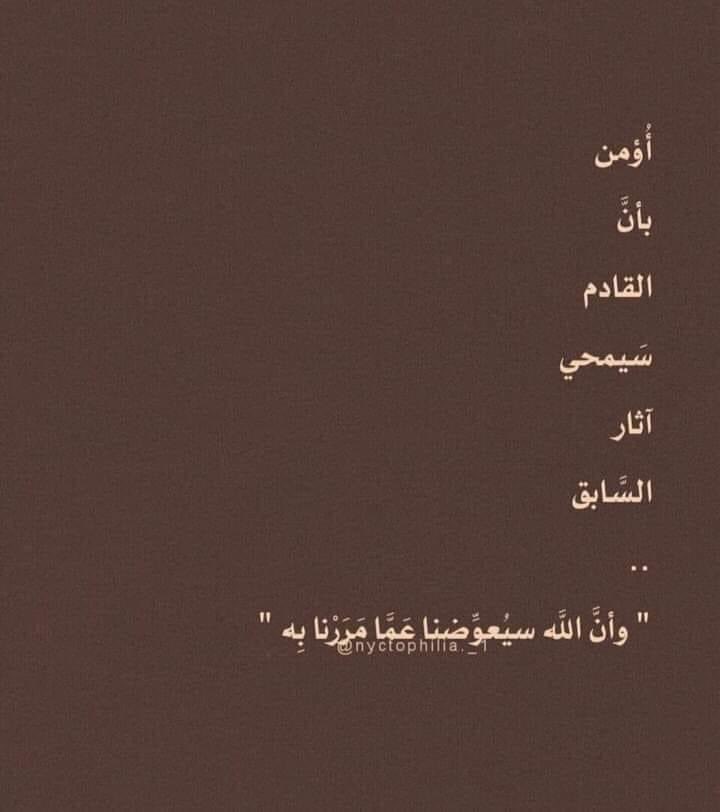 أُؤمن
بأنَّ
القادم
سَيمحي
آثار
السَّابق
..
" وأنَّ اللَّه سيُعوِّضنا عَمَّا مَرَرْنا بِه "
@nyctophilia._1